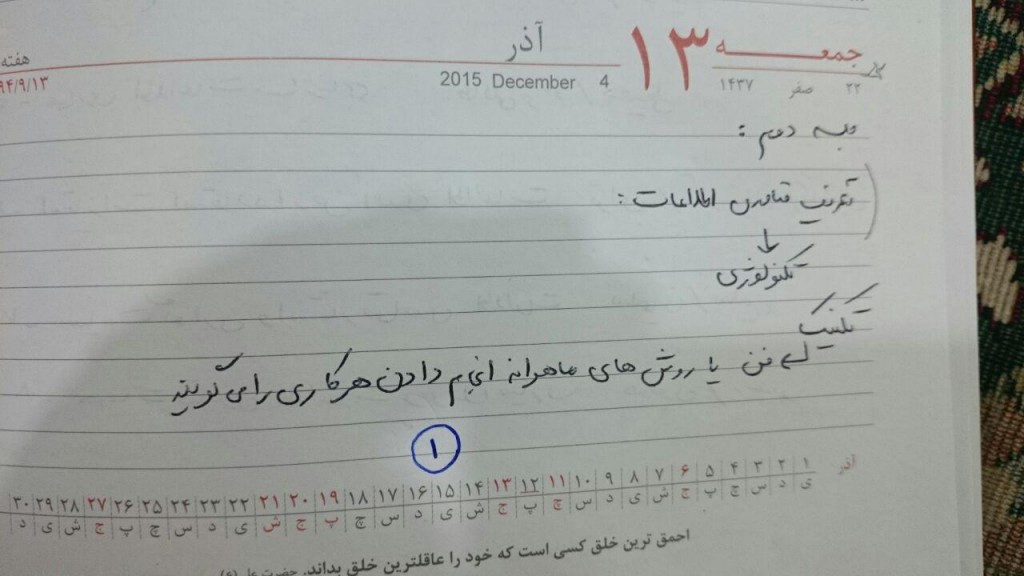 جمعه ۱۳ آذر هفته
۲۲ صفر ۱۴۳۷ 4 December 2015 ۹۴/۹/۱۳
جلسه دوم :
تعریف فناوری اطلاعات :
تکنولوژی
تکنیک
فن یا روش های ماهرانه انجام دادن هر کاری را می گویند
۱
آذر ۱ ۲ ۳ ۴ ۵ ۶ ۷ ۸ ۹ ۱۰ ۱۱ ۱۲ ۱۳ ۱۴ ۱۵ ۱۶ ۱۷ ۱۸ ۱۹ ۲۰ ۲۱ ۲۲ ۲۳ ۲۴ ۲۵ ۲۶ ۲۷ ۲۸ ۲۹ ۳۰
ی د س چ پ ج ش ی د س چ پ ج ش ی د س چ پ ج ش ی د س چ پ ج ش ی د
احمق ترین خلق کسی است که خود را عاقلترین خلق بداند. حضرت علی (ع)